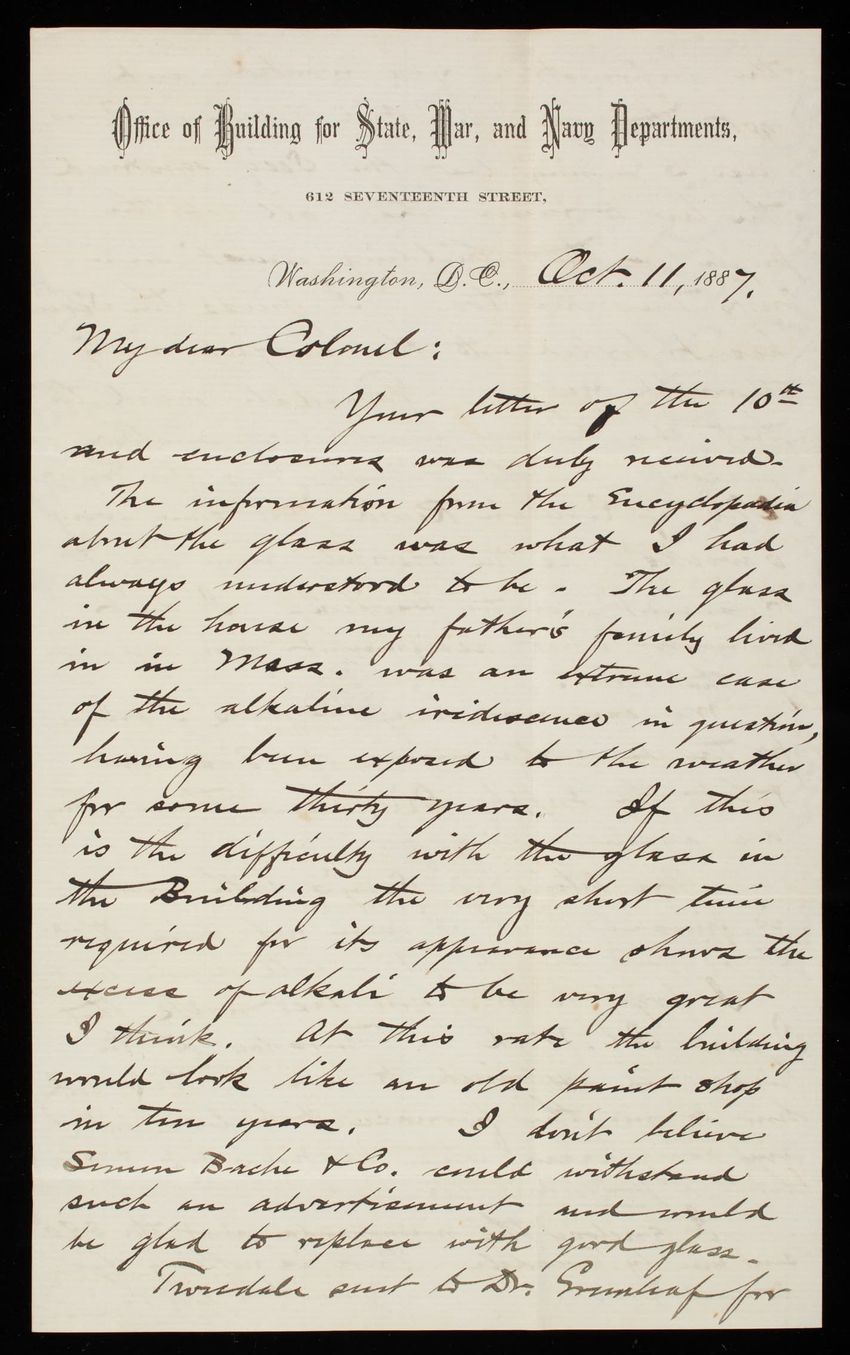 Office of Building for State, War, and Navy Departments,
612 SEVENTEENTH STREET,
Washington, D.C., Oct. 11, 1887.
My dear Colonel:
Your letter of the 10th
and enclosures was duly received.
The information from the Encyclopædia
about the glass was what I had
always understood to be. The glass
in the house my father's family lived
in in Mass. was an extreme case
of the alkaline iridescence in question,
having been exposed to the weather
for some thirty years. If this
is the difficulty with the glass in
the Building the very short time
required for its appearance shows the
excess of alkali to be very great
I think. At this rate the building
would look like an old paint shop
in ten years. I don't believe
Semon Bache & Co. could withstand
such an advertisement and would
be glad to replace with good glass.
Tweedale sent to Dr. Greenleaf for